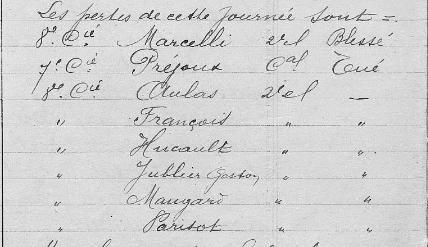 Les pertes de cette journée sont =
8e Cie Marcelli 2e cl Blessé
7e Cie Préjoux Cal Tué
8e Cie Aulas 2e cl —
" François " "
" Hucault " "
" Jublier (Gaston) " "
" Maugard " "
" Parisot " "